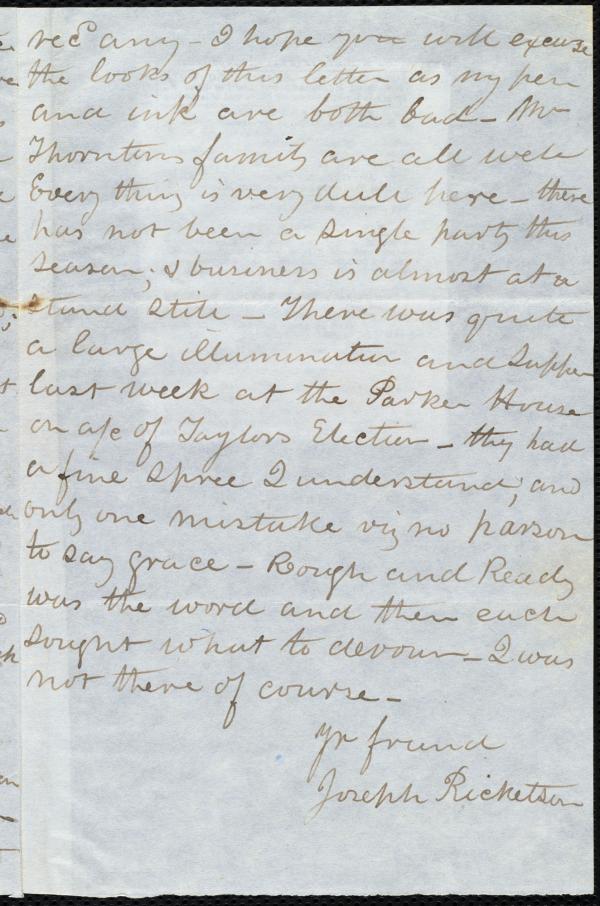 recd any - I hope you will excuse
the looks of this letter as my pen
and ink are both bad - Mr
Thorntons family are all well
Every thing is very dull here - there
has not been a single party this
season, & business is almost at a
stand still - There was quite
a large illumination and supper
last week at the Parker House
on a/c of Taylors Election - they had
a fine spree I understand, and
only one mistake viz no parson
to say grace - Rough and Ready
was the word and then each
sought what to devour - I was
not there of course -
yr friend
Joseph Ricketson